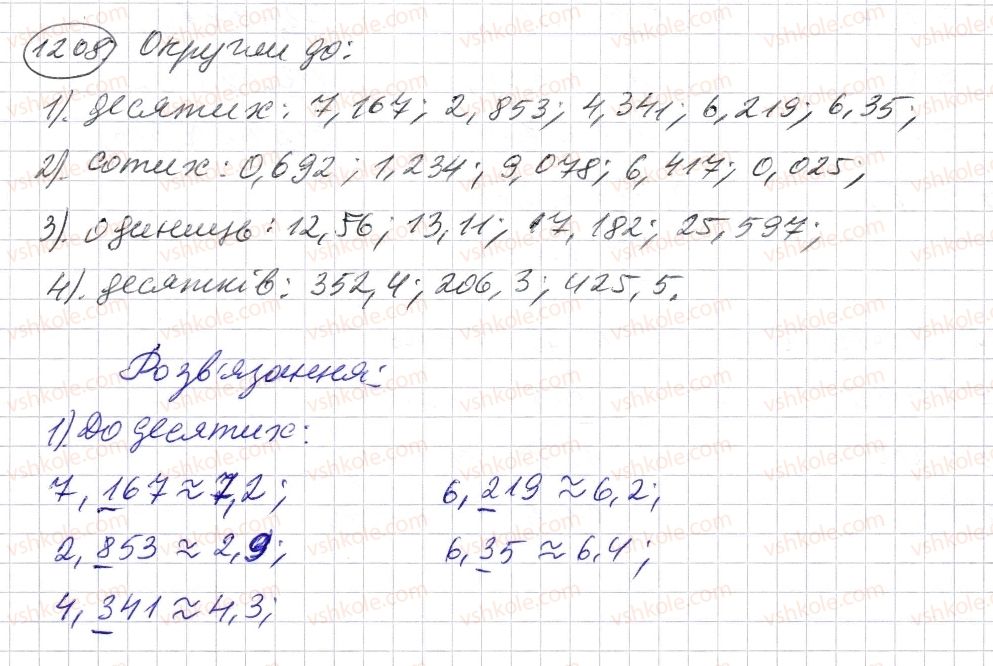 1208 Округли до:
1). десятих: 7,167; 2,853; 4,341; 6,219; 6,35;
2). сотих: 0,692; 1,234; 9,078; 6,417; 0,025;
3). одиниць: 12,56; 13,11; 17,182; 25,597;
4). десятків: 352,4; 206,3; 425,5.
Розв'язання:
1). До десятих:
7,167 ≈ 7,2; 6,219 ≈ 6,2;
2,853 ≈ 2,9; 6,35 ≈ 6,4;
4,341 ≈ 4,3;
vshkole.com